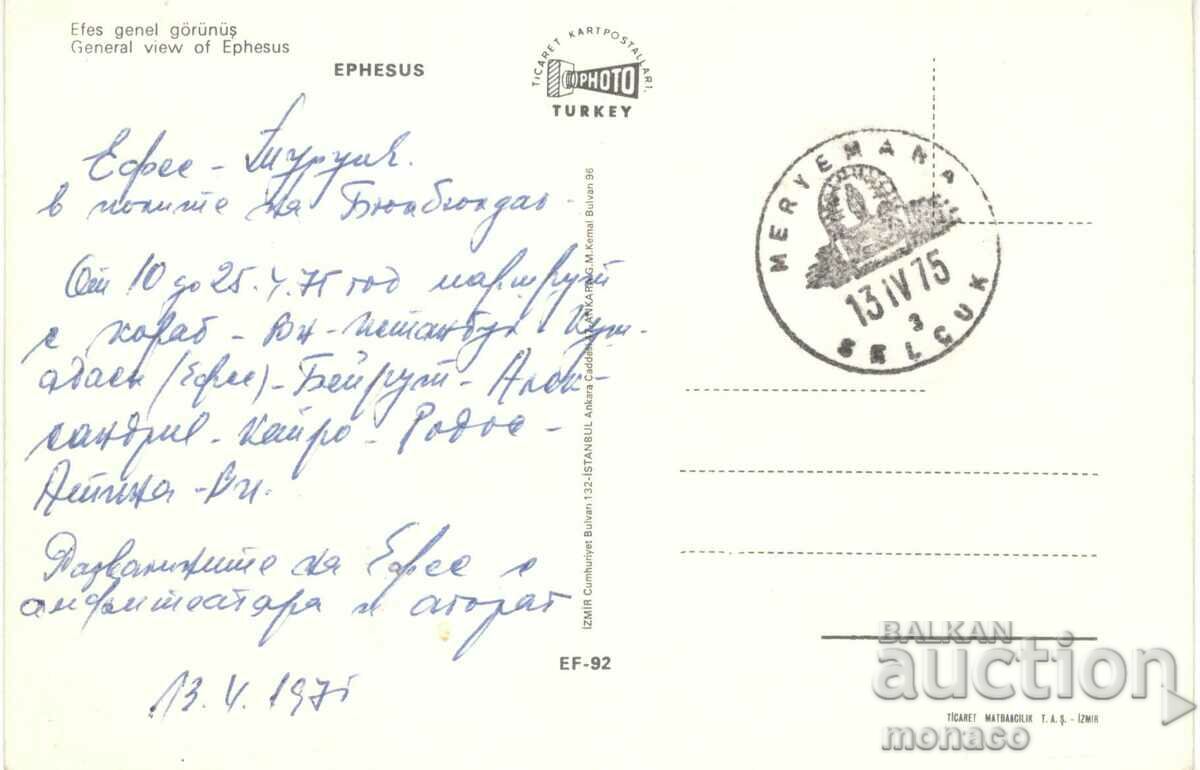 Efes genel görünüş
General view of Ephesus
EPHESUS
TİCARET KARTPOSTALLARI.
PHOTO
TURKEY
Ефес - Турция.
в полите на Бюлбюлдаг.
От 10 до 25.4.75 год маршрут
с кораб - Вн - Истанбул - Куш-
адасъ (Ефес) - Бейрут - Алек-
сандрия - Кайро - Родос -
Атина - Вн.
Развалините на Ефес с
амфитеатъра и агората
13.V.1975
İZMİR Cumhuriyet Bulvarı 132-İSTANBUL Ankara Caddesi ANKARA G.M.Kemal Bulvarı 96
EF-92
MERYEMANA
13 IV 75
3
SELÇUK
BALKAN
auction
monaco
TİCARET MATBAACILIK T. A. Ş. - İZMİR